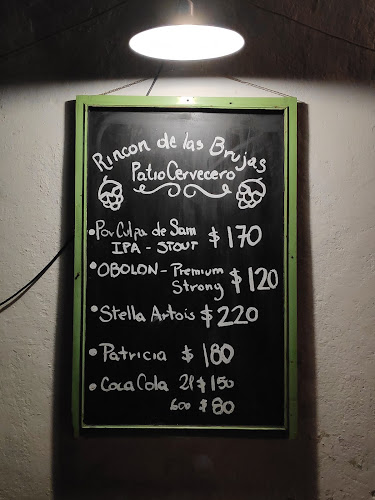 Rincon de las Brujas
Patio Cervecero
• Por Culpa de Sam $170
IPA - STOUT
• OBOLON - Premium $120
Strong
• Stella Artois $220
• Patricia $180
• Coca Cola 2l $150
600 $80